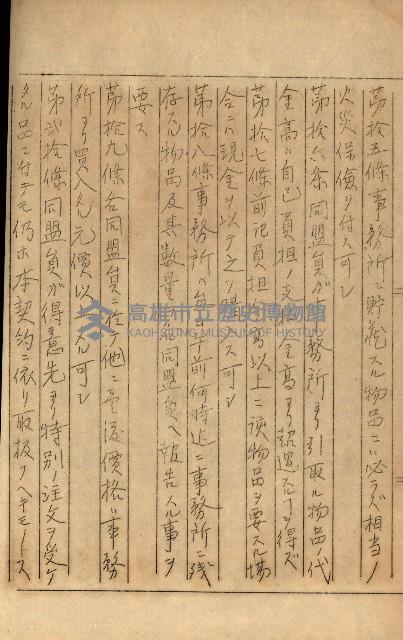 第拾五條事務所ニ貯蔵スル物品ニハ必ラズ相当ノ
火災保険ヲ付ス可シ
第拾六条同盟員ガ事務所ヨリ引取ル物品ノ代
金高ハ自己負担ノ支 金高ヨリ超過スルヲ得ズ
第拾七條前記負担 高以上ニ該物品ヲ要スル場
合ニハ現金ヲ以テ之ヲ ス可シ
第拾八條事務所ハ毎日 前何時迄ニ事務所ニ残
存スル物品及其数量 各同盟員ヘ報告スル事ヲ
要ス
第拾九條各同盟員ニ於テ他ニ売渡價格ハ事務
所ヨリ買入タル元價以 タル可シ
第弐拾條同盟員ガ得意先ヨリ特別ノ注文ヲ受ケ
タル品ニ付テモ仍ホ本契約ニ依リ取扱フヘキモノトス
高雄市立歷史博物館
KAOHSIUNG MUSEUM OF HISTORY